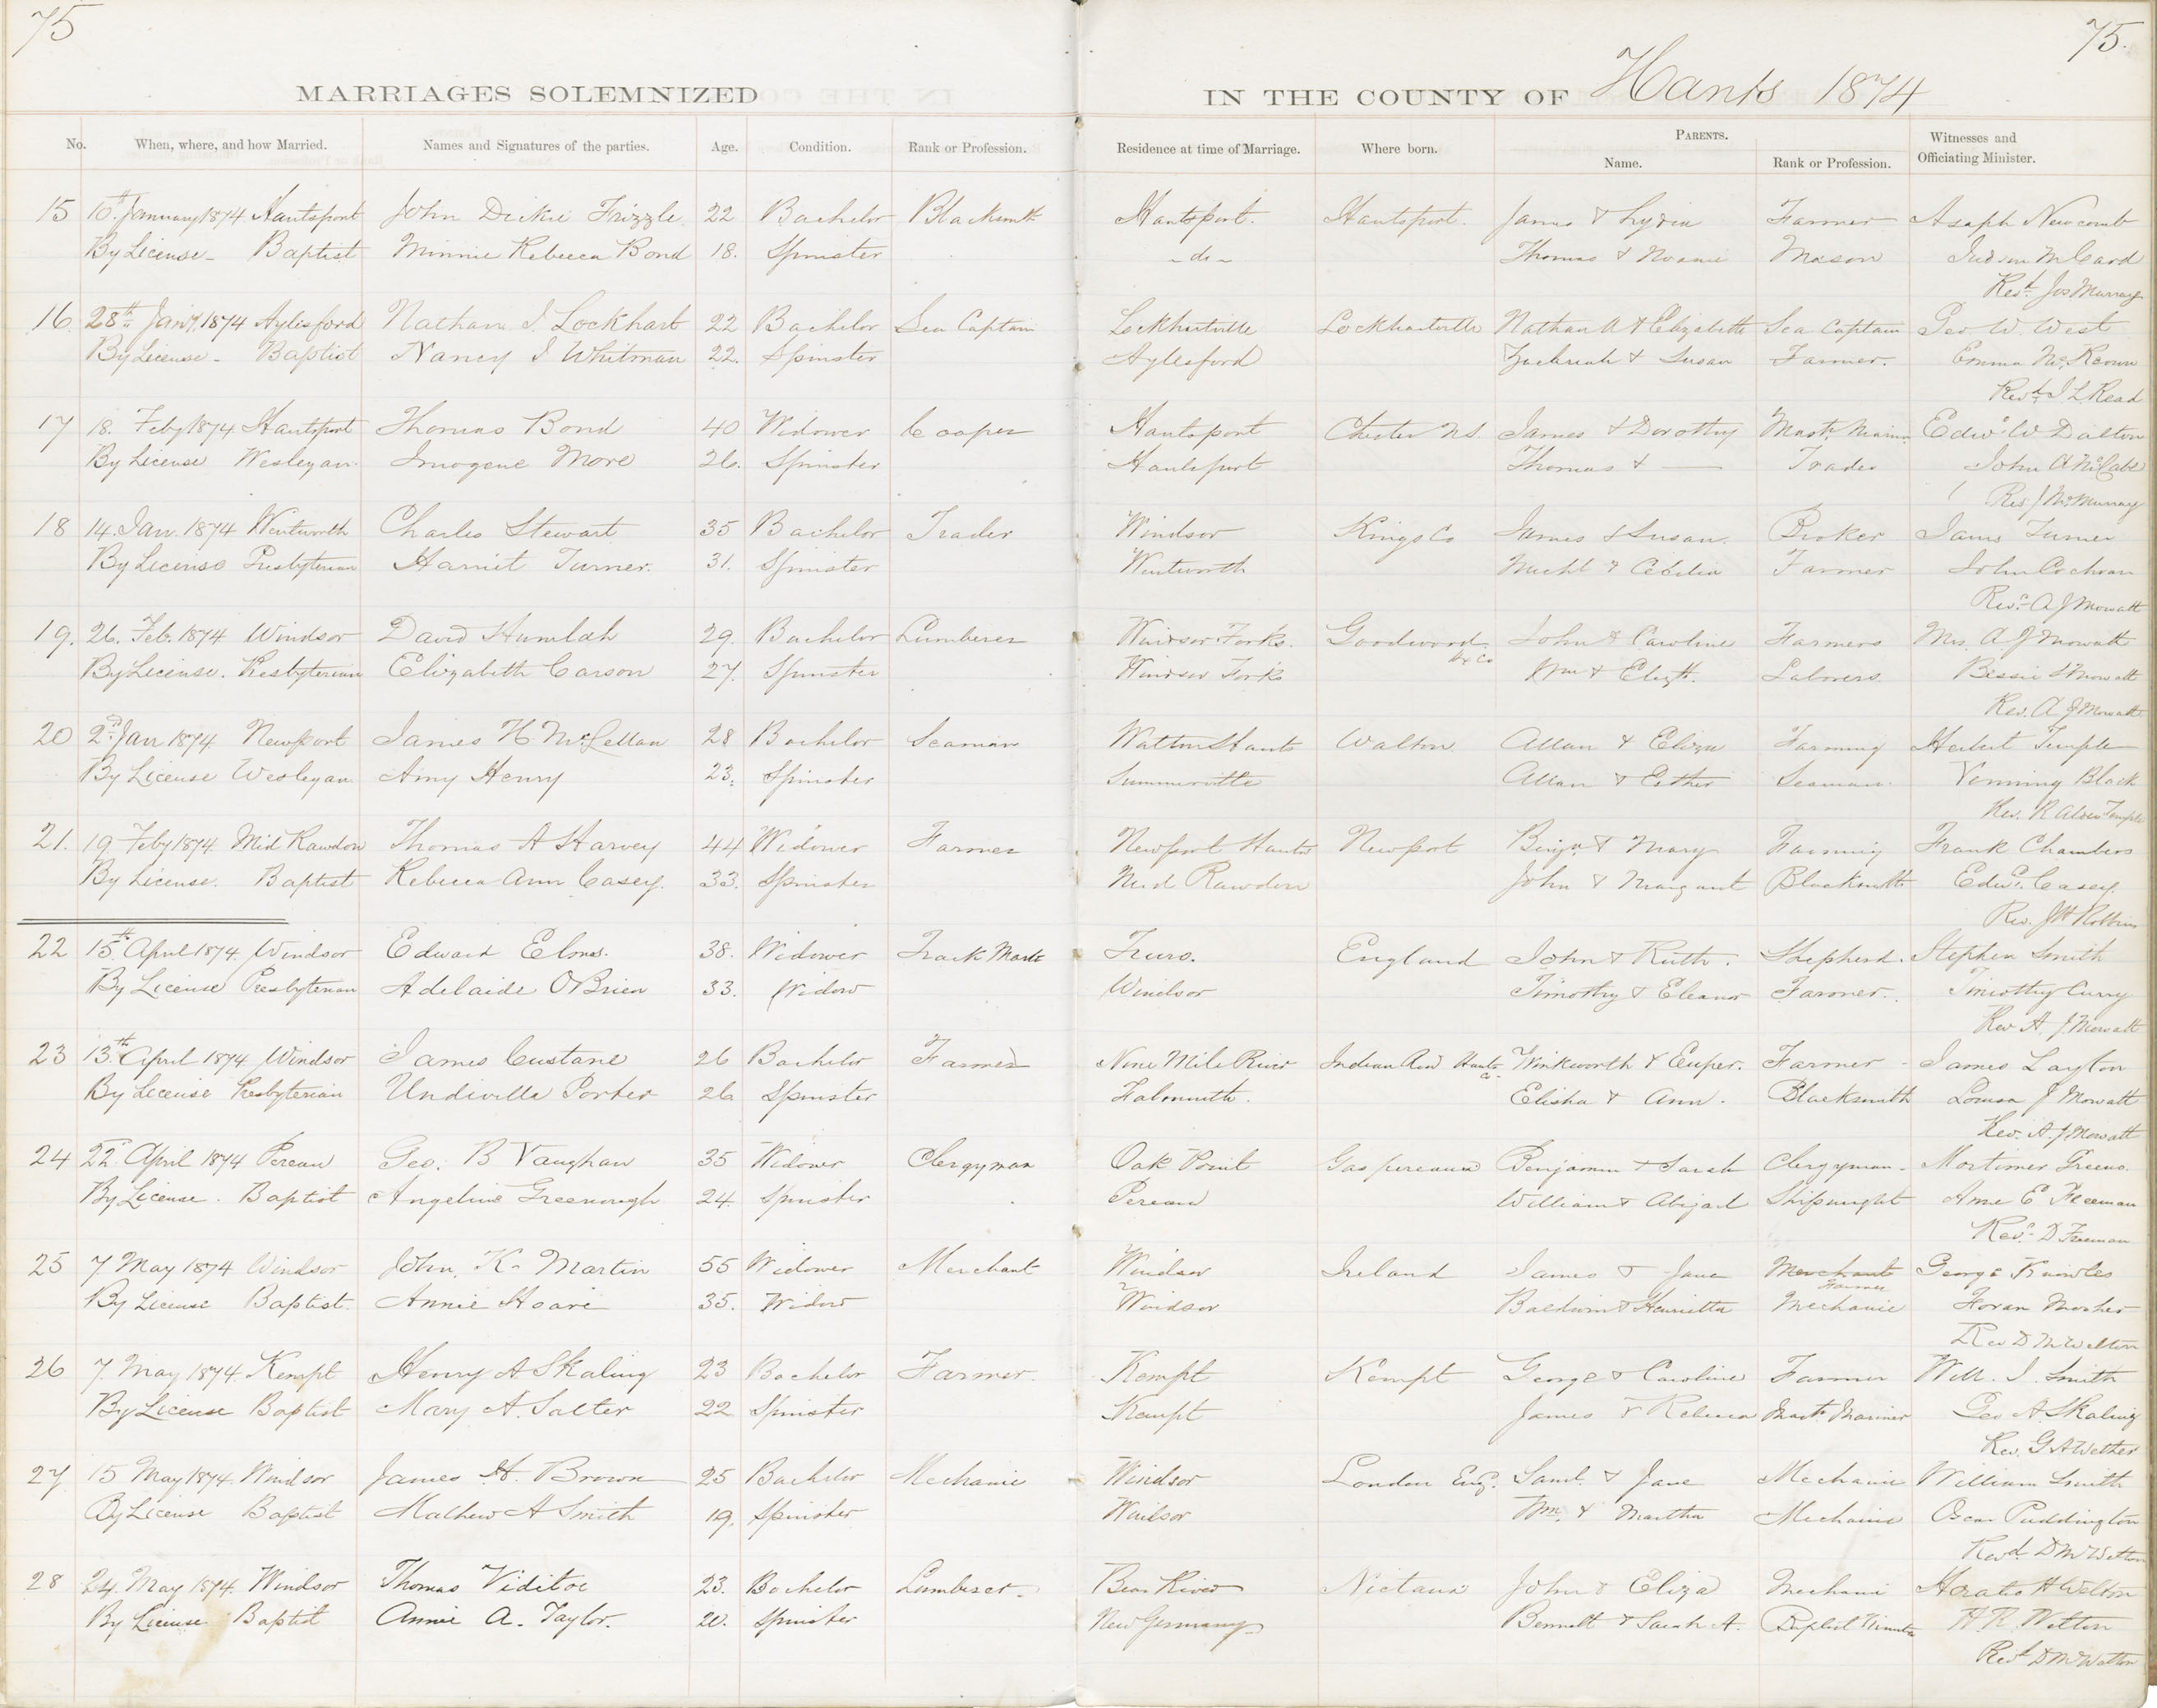 75
75.
MARRIAGES SOLEMNIZED IN THE COUNTY OF Hants 1874
No. When, where, and how Married. Names and Signatures of the parties. Age. Condition. Rank or Profession. Residence at time of Marriage. Where born. PARENTS. Name. Rank or Profession. Witnesses and Officiating Minister.
15 10th January 1874 Hantsport John Dickie Frizzle 22 Bachelor Blacksmith Hantsport. Hantsport. James & Lydia Farmer Asaph Newcomb
By License - Baptist Minnie Rebecca Bond 18. Spinster - do - Thomas & Mason Judson McCard
Revd. Jos Murray
16 28th Jany. 1874 Aylesford Nathan J. Lockhart 22 Bachelor Sea Captain Lockhartville Lockhartville Nathan A & Elizabeth Sea Captain Geo W. West
By License - Baptist Nancy J Whitman 22. Spinster Aylesford Zachriah & Susan Farmer. Emma McKeown
Revd. J L Read
17 18. Feby 1874 Hantsport Thomas Bond 40 Widower Cooper Hantsport Chester N.S. James & Dorothy Mastr. Marinr. Edwd W Dalton
By License Wesleyan. Imogene More 26. Spinster Hantsport Thomas & — Trader John A McCabe
Rev J McMurray
18 14. Jan. 1874 Wentworth Charles Stewart 35 Bachelor Trader Windsor Kings Co James & Susan. Broker James Turner
By License Presbyterian Harriet Turner. 31. Spinster Wentworth Michl & Cecelia Farmer John Cochran
Revd A J Mowatt
19. 26. Feb. 1874 Windsor David Humlah 29. Bachelor Lumberer Windsor Forks. Goodwood Hx Co John & Caroline Farmers Mrs. A J Mowatt
By License. Presbyterian Elizabeth Carson 27. Spinster Windsor Forks Wm & Elizth. Laborers. Bessie S Mowatt
Rev. A J Mowatt
20 2d Jan 1874 Newport James H McLellan 28 Bachelor Seaman Walton Hants Walton. Allan & Eliza Farming Herbert Temple
By License Wesleyan Amy Henry 23. Spinster Summerville Allan & Esther Seaman. Venning Black
Rev. R Alder Temple
21. 19 Feby 1874 Mid Rawdon Thomas A Harvey 44 Widower Farmer Newport Hants Newport Benjn. & Mary Farming Frank Chambers
By License. Baptist Rebecca Ann Casey. 33. Spinster Mid Rawdon John & Margaret Blacksmith Edwd. Casey.
Rev. J H Robbins
22 15th April 1874. Windsor Edward Elms. 38. Widower Track Mastr Truro. England John & Ruth. Shepherd. Stephen Smith
By License Presbyterian Adelaide OBrien 33. Widow Windsor Timothy & Eleanor Farmer. Timothy Curry
Rev A. J Mowatt
23 13th April 1874 Windsor James Custane 26 Bachelor Farmer Nine Mile River Indian Rd Hants Co. Winkworth & Euper. Farmer - James Layton
By License Presbyterian Undivilla Porter 26 Spinster Falmouth. Elisha & Ann. Blacksmith Louisa J Mowatt
Rev. A. J Mowatt
24 22d April 1874 Pereau Geo. B Vaughan 35 Widower Clergyman Oak Point Gaspereaux Benjamin & Sarah Clergyman - Mortimer Greeno.
By License. Baptist Angeline Greenough 24. Spinster Pereau William & Abigail Shipwright Anne E Freeman
Revd. D Freeman
25 7 May 1874 Windsor John K. Martin 55 Widower Merchant Windsor Ireland James & Jane Merchant Farmer George Knowles
By License Baptist. Annie Hoare 35. Widow Windsor Baldwin & Henrietta Mechanic Mosher
Rev D M Welton
26 7. May 1874. Kempt Henry A Skaling 23 Bachelor Farmer. Kempt Kempt George & Caroline Farmer Will. J. Smith
By License Baptist Mary A. Salter 22 Spinster Kempt James & Rebecca Mastr. Mariner Geo A. Skaling
Rev. G A Wether
27 15 May 1874. Windsor James H. Brown 25 Bachelor Mechanic Windsor London Eng. Saml. & Jane Mechanic William Smith
By License Baptist Mathew A Smith 19. Spinster Windsor Wm. & Martha Mechanic Oscar Puddington
Revd. D M Welton
28 24. May 1874. Windsor Thomas Viditoe 23. Bachelor Lumberer. Bear River Nictaux John & Eliza Mechanic Horatio H Welton
By License. Baptist Annie A. Taylor. 20. Spinster New Germany Bennett & Sarah A. Baptist Minister H. R. Welton
Revd D M Welton